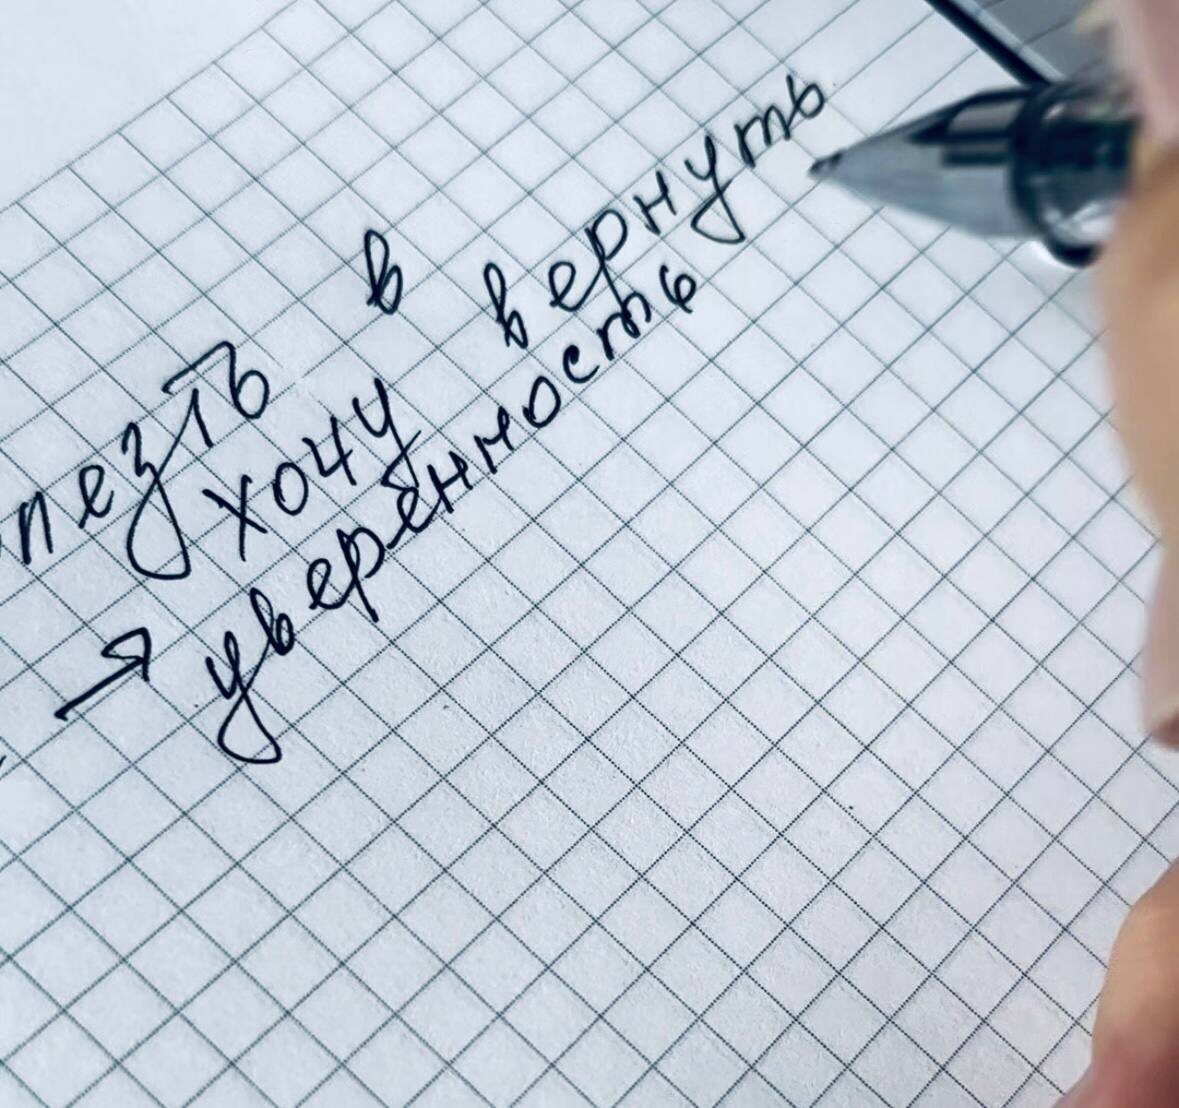 лезть в
хочу вернуть
→ уверенность